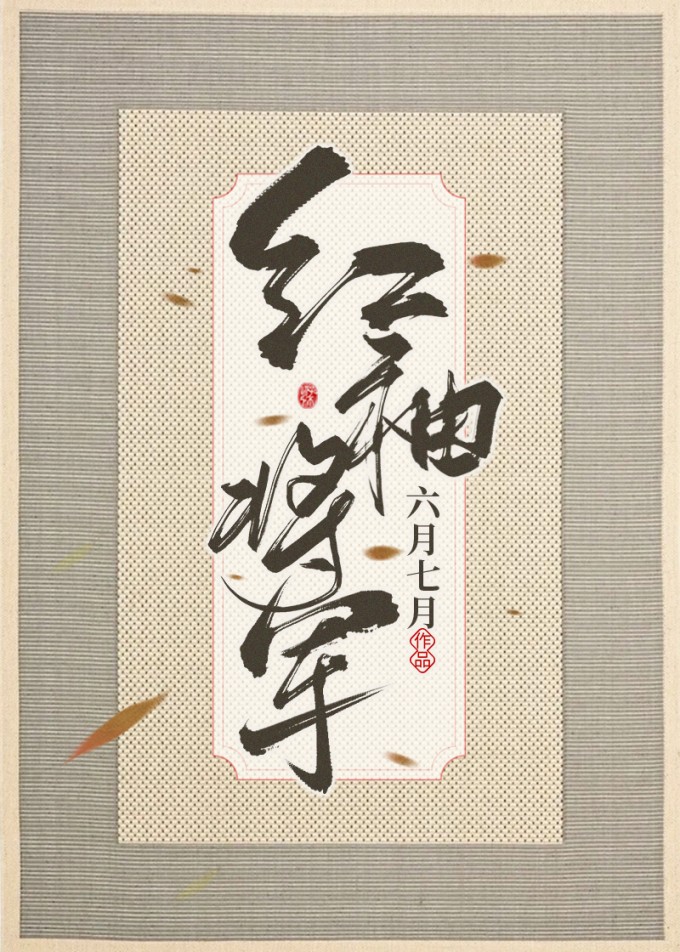 红袖将军
六月七月
作品